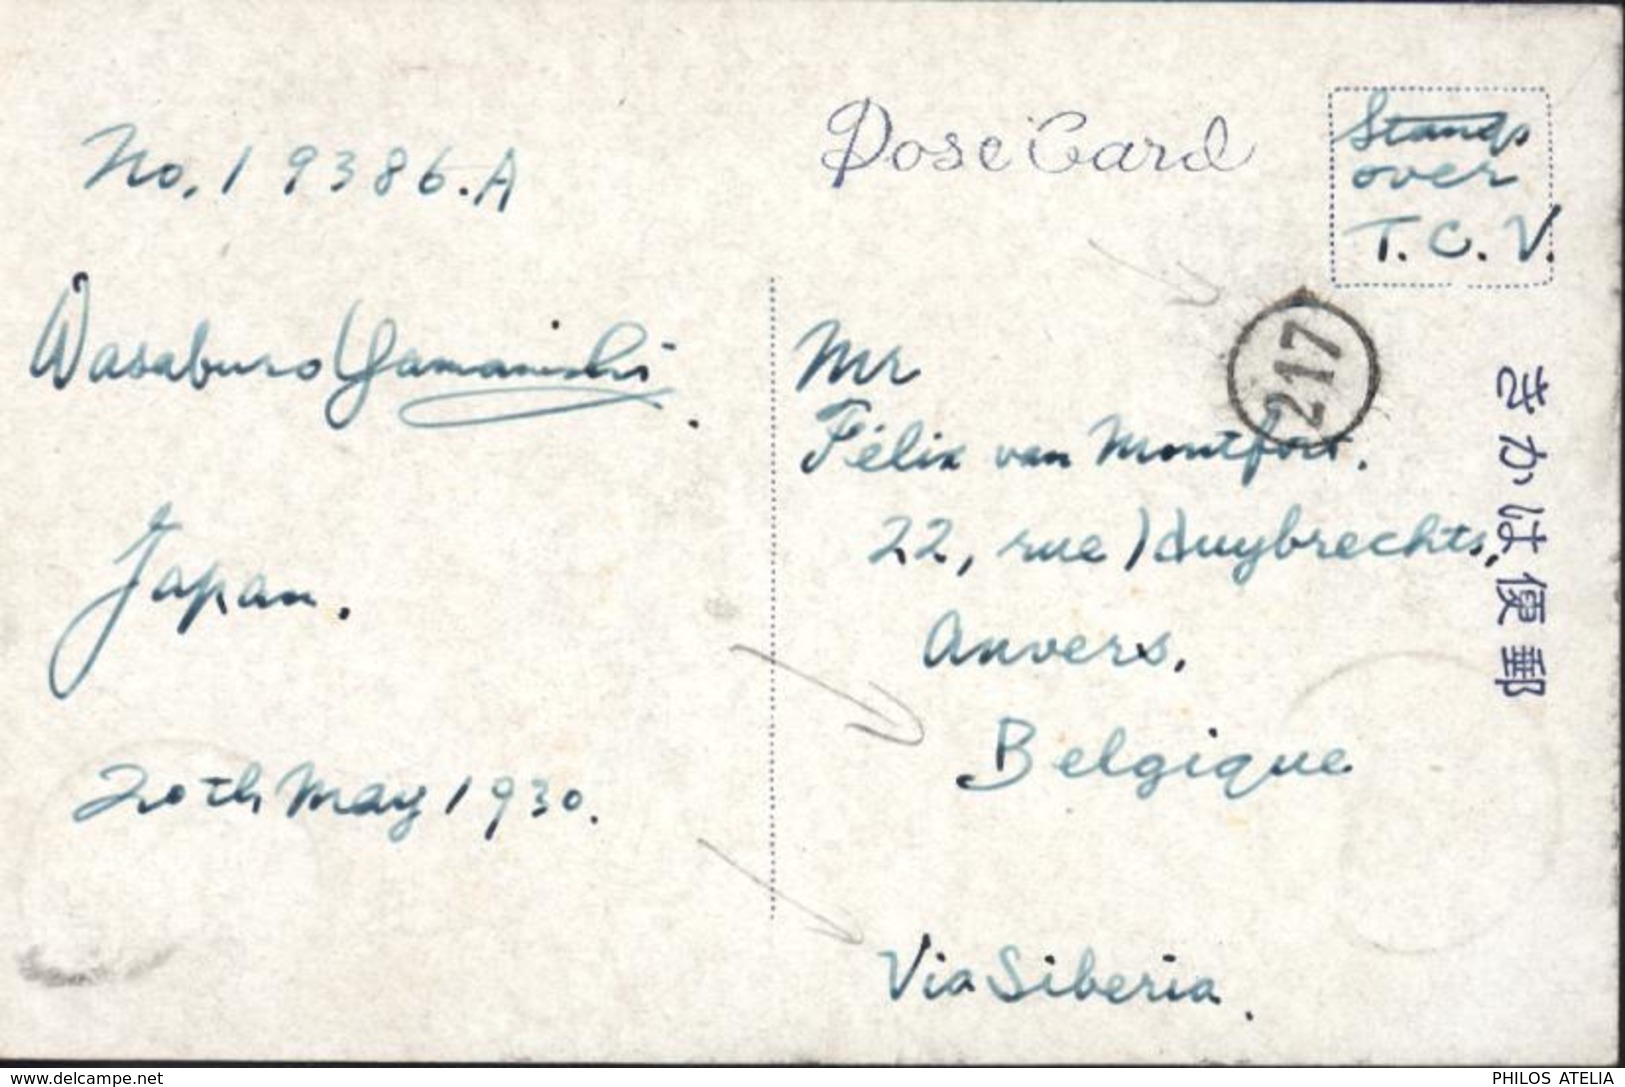 No. 19386.A
Wasaburo Yamanishi.
Japan.
20th May 1930.
Post Card
Stamps
over
T.C.V.
217
Mr
Félix van Montfort.
22, rue Huybrechts,
Anvers.
Belgique
Via Siberia.
きかは便郵
www.delcampe.net
PHILOS ATELIA